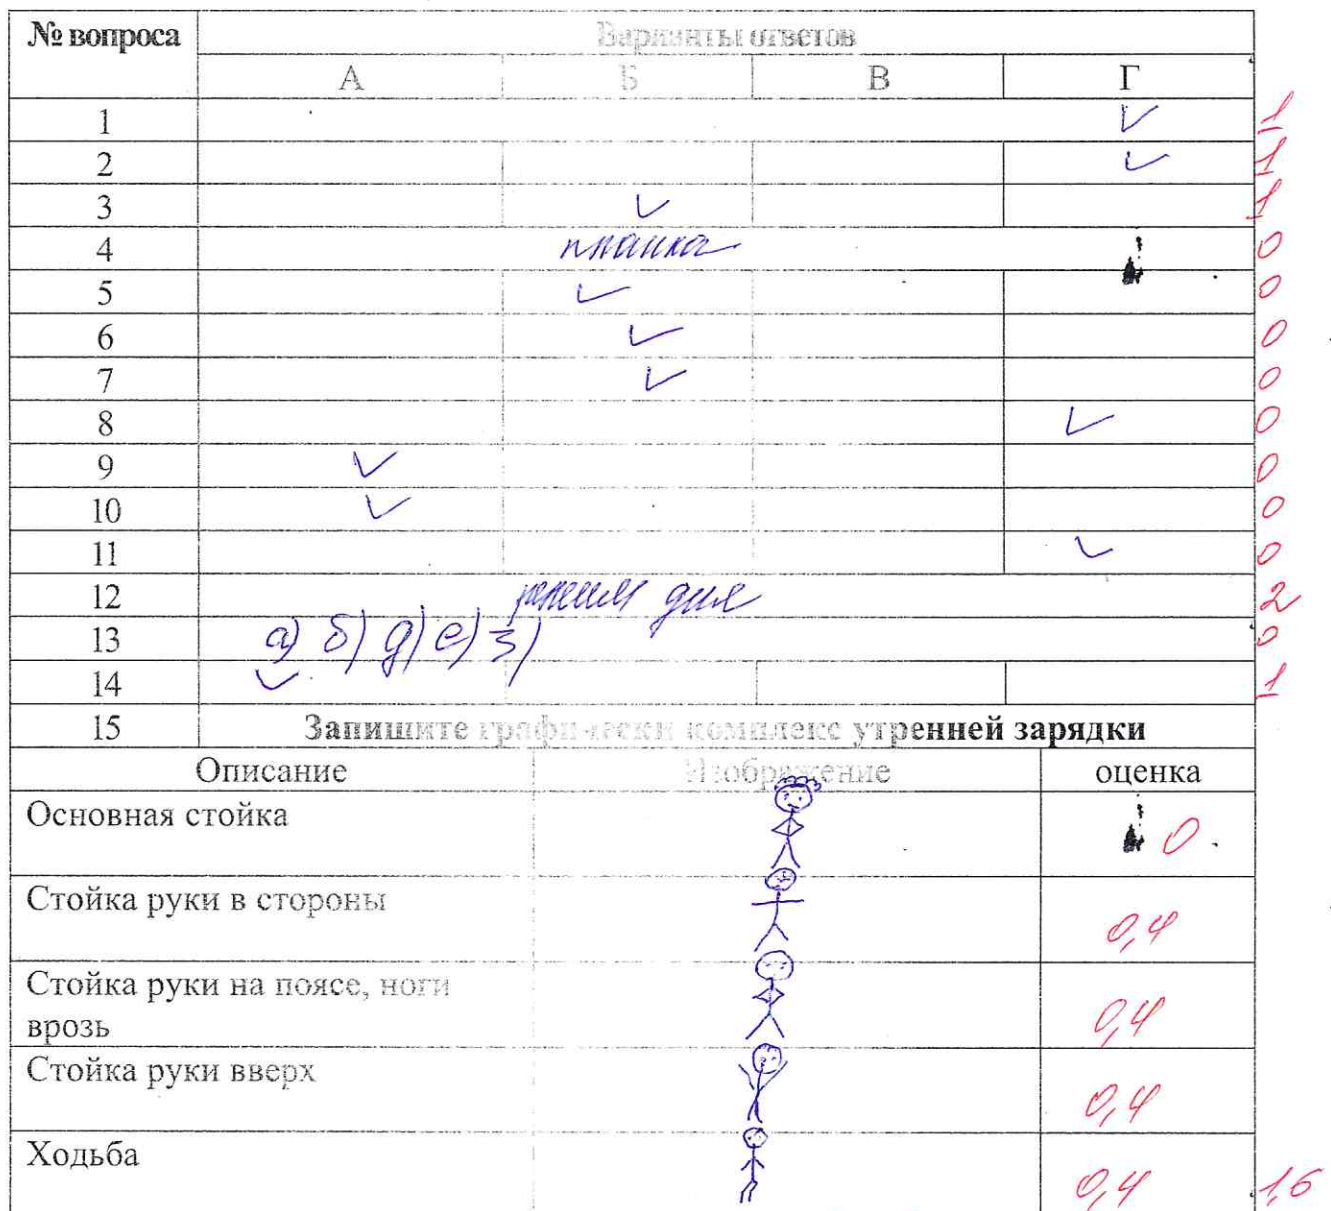 № вопроса Варианты ответов
А Б В Г
1 ✓ 1
2 ✓ 1
3 ✓ 1
4 планка 0
5 ✓ 0
6 ✓ 0
7 ✓ 0
8 ✓ 0
9 ✓ 0
10 ✓ 0
11 ✓ 0
12 режим дня 2
13 а) б) д) е) з) 0
14 ✓ 1
15 Запишите графически комплекс утренней зарядки
Описание Изображение оценка
Основная стойка 0
Стойка руки в стороны 0,4
Стойка руки на поясе, ноги
врозь 0,4
Стойка руки вверх 0,4
Ходьба 0,4 1,6